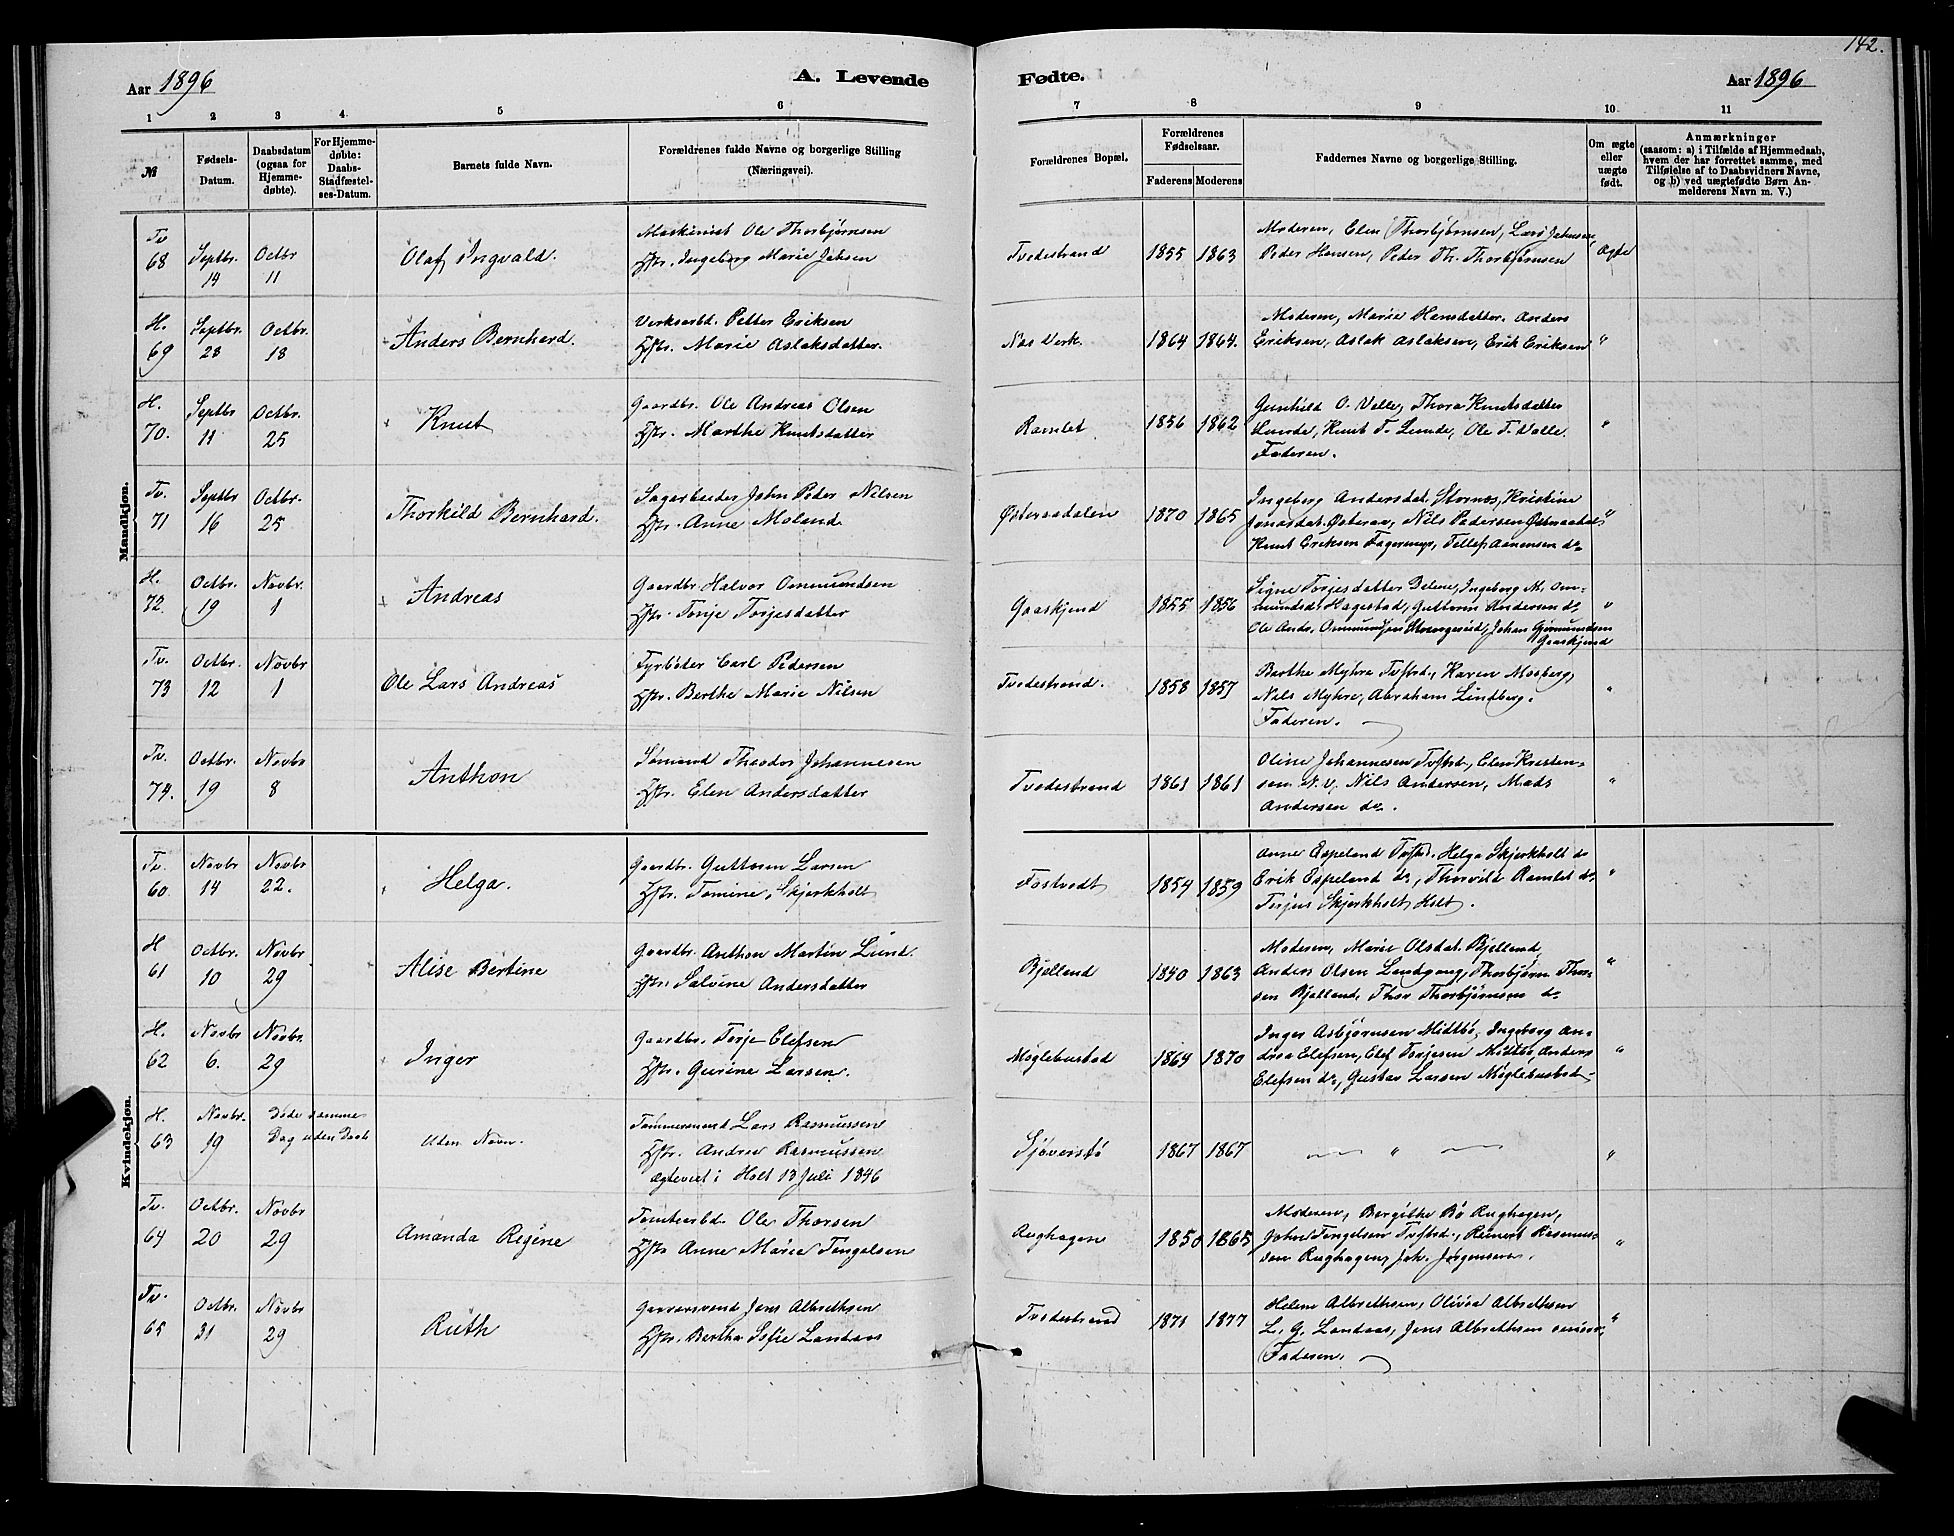 142.
Aar 1896
A. Levende Fødte.
Aar 1896
1 2 3 4 5 6 7 8 9 10. 11
№
Fødsels-Datum.
Daabsdatum (ogsaa for Hjemme-døbte).
For Hjemme-døbte: Daabs-Stadfæstel-ses-Datum.
Barnets fulde Navn.
Forældrenes fulde Navne og borgerlige Stilling (Næringsvei).
Forældrenes Bopæl.
Forældrenes Fødselsaar.
Faderens Moderens
Faddernes Navne og borgerlige Stilling.
Om ægte eller uægte født.
Anmærkninger
(saasom: a) i Tilfælde af Hjemmedaab,
hvem der har forrettet samme, med
Tilføielse af to Daabsvidners Navne,
og b) ved uægtefødte Børn An-
melderens Navn m. V.)
Mandkjøn.
Tv 68 Septbr. 14 Octbr 11 Olaf Ingvald.
Maskinist Ole Thorbjørnsen
Hstr. Ingeborg Marie Jahsen
Tvedestrand 1855 1863
Moderen, Elen Thorbjørnsen, Lars Jahnsen,
Peder Hansen, Peder Th. Thorbjørnsen
Ægte
H. 69 Septbr. 28 Octbr. 18 Anders Bernhard.
Verksarbd. Petter Eriksen
Hstr. Marie Aslaksdatter.
Næs Verk. 1864 1864.
Moderen, Marie Hansdatter. Anders
Eriksen, Aslak Aslaksen, Erik Eriksen "
H. 70. Septbr 11 Octbr. 25 Knut
Gaardbr. Ole Andreas Olsen
Hstr. Marthe Knutsdatter
Ramlet 1856 1862
Gunhild O. Valle, Thora Knutsdatter
Lunde, Knut T. Lunde, Ole T. Valle.
Faderen. "
Tv. 71 Septbr 16 Octbr. 25 Thorkild Bernhard.
Sagarbeider John Peder Nilsen
Hstr. Anne Moland
Østeraadalen 1870 1865
Ingeborg Andersdat. Stornæs, Kristine
Jonasdat. Østeraa, Nils Pedersen Østeraadal
Knut Eriksen Fagermyr, Tellef Aanensen do "
H. 72. Octbr. 19 Novbr. 1 Andreas
Gaardbr. Halvor Ommundsen
Hstr. Torje Torjesdatter
Gaaskjend 1855 1856
Signe Torjesdatter Belene, Ingeborg M. Om-
mundsdt. Hagestad, Guttorm Andersen do,
Ole Andr. Ommundsen Strengereid, Johan Gjermundsen
Gaaskjend "
Tv. 73 Octbr. 12 Novbr 1 Ole Lars Andreas
Fyrbøter Carl Pedersen
Hstr. Berthe Marie Nilsen
Tvedestrand. 1858 1857
Berthe Myhre Tvstrd., Karen Mosberg,
Nils Myhre, Abraham Lindberg.
Faderen. "
Tv. 74. Octbr. 19 Novbr 8 Anthon
Sømand Theodor Johannesen
Hstr. Elen Andersdatter
Tvedestrand 1861 1861
Oline Johannesen Tvstrd., Elen Kristen-
sen N. V, Nils Andersen, Mads
Andersen do. "
Kvindekjøn.
Tv. 60. Novbr 14 Novbr 22. Helga.
Gaardbr. Guttorm Larsen
Hstr. Tomine Skjerkholt
Fostvedt 1854 1859
Anne Espeland Tvstrd. Helga Skjerkholt do
Erik Espeland do, Thorvild Ramlet do
Terjus Skjerkholt Holt. "
H 61 Octbr. 10 Novbr 29 Alise Bertine
Gaardbr. Anthon Martin Lund.
Hstr. Salvine Andersdatter
Bjelland 1840 1863
Moderen, Marie Olsdat. Bjelland
Anders Olsen Landgang, Thorbjørn Thor-
sen Bjelland, Thor Thorbjørnsen do "
H. 62 Novbr 6. Novbr. 29 Inger
Gaardbr. Torje Elefsen
Hstr. Gurine Larsen.
Møglebustad 1864 1870
Inger Asbjørnsen Midtbø, Ingeborg An-
drea Elefsen, Elef Torjesen Midtbø, Anders
Elefsen do, Gustav Larsen Møglebustad "
H. 63 Novbr. 19 Døde samme Dag uden Daab Uden Navn.
Tømmermand Lars Rasmussen
Hstr. Andrea Rasmussen
Ægteviet i Holt 13 Juli 1896
Sjøverstø 1867 1867 " "
Tv. 64 Octbr. 20 Novbr 29 Amanda Regine
Tomtearbd. Ole Thorsen
Hstr Anne Marie Tengelsen
Rughagen 1850 1865
Moderen, Bergithe Bø Rughagen,
John Tengelsen Tvstrd., Reinert Rasmus-
sen Rughagen, Joh. Jørgensen. "
Tv. 65 Octbr. 31 Novbr 29 Ruth
Garversvend Jens Albrethsen
Hstr. Bertha Sofie Landaas
Tvedestrand 1871 1877
Helene Albrethsen, Olivia Albrethsen
L. G. Landaas, Jens Albrethsen senior,
Faderen. "